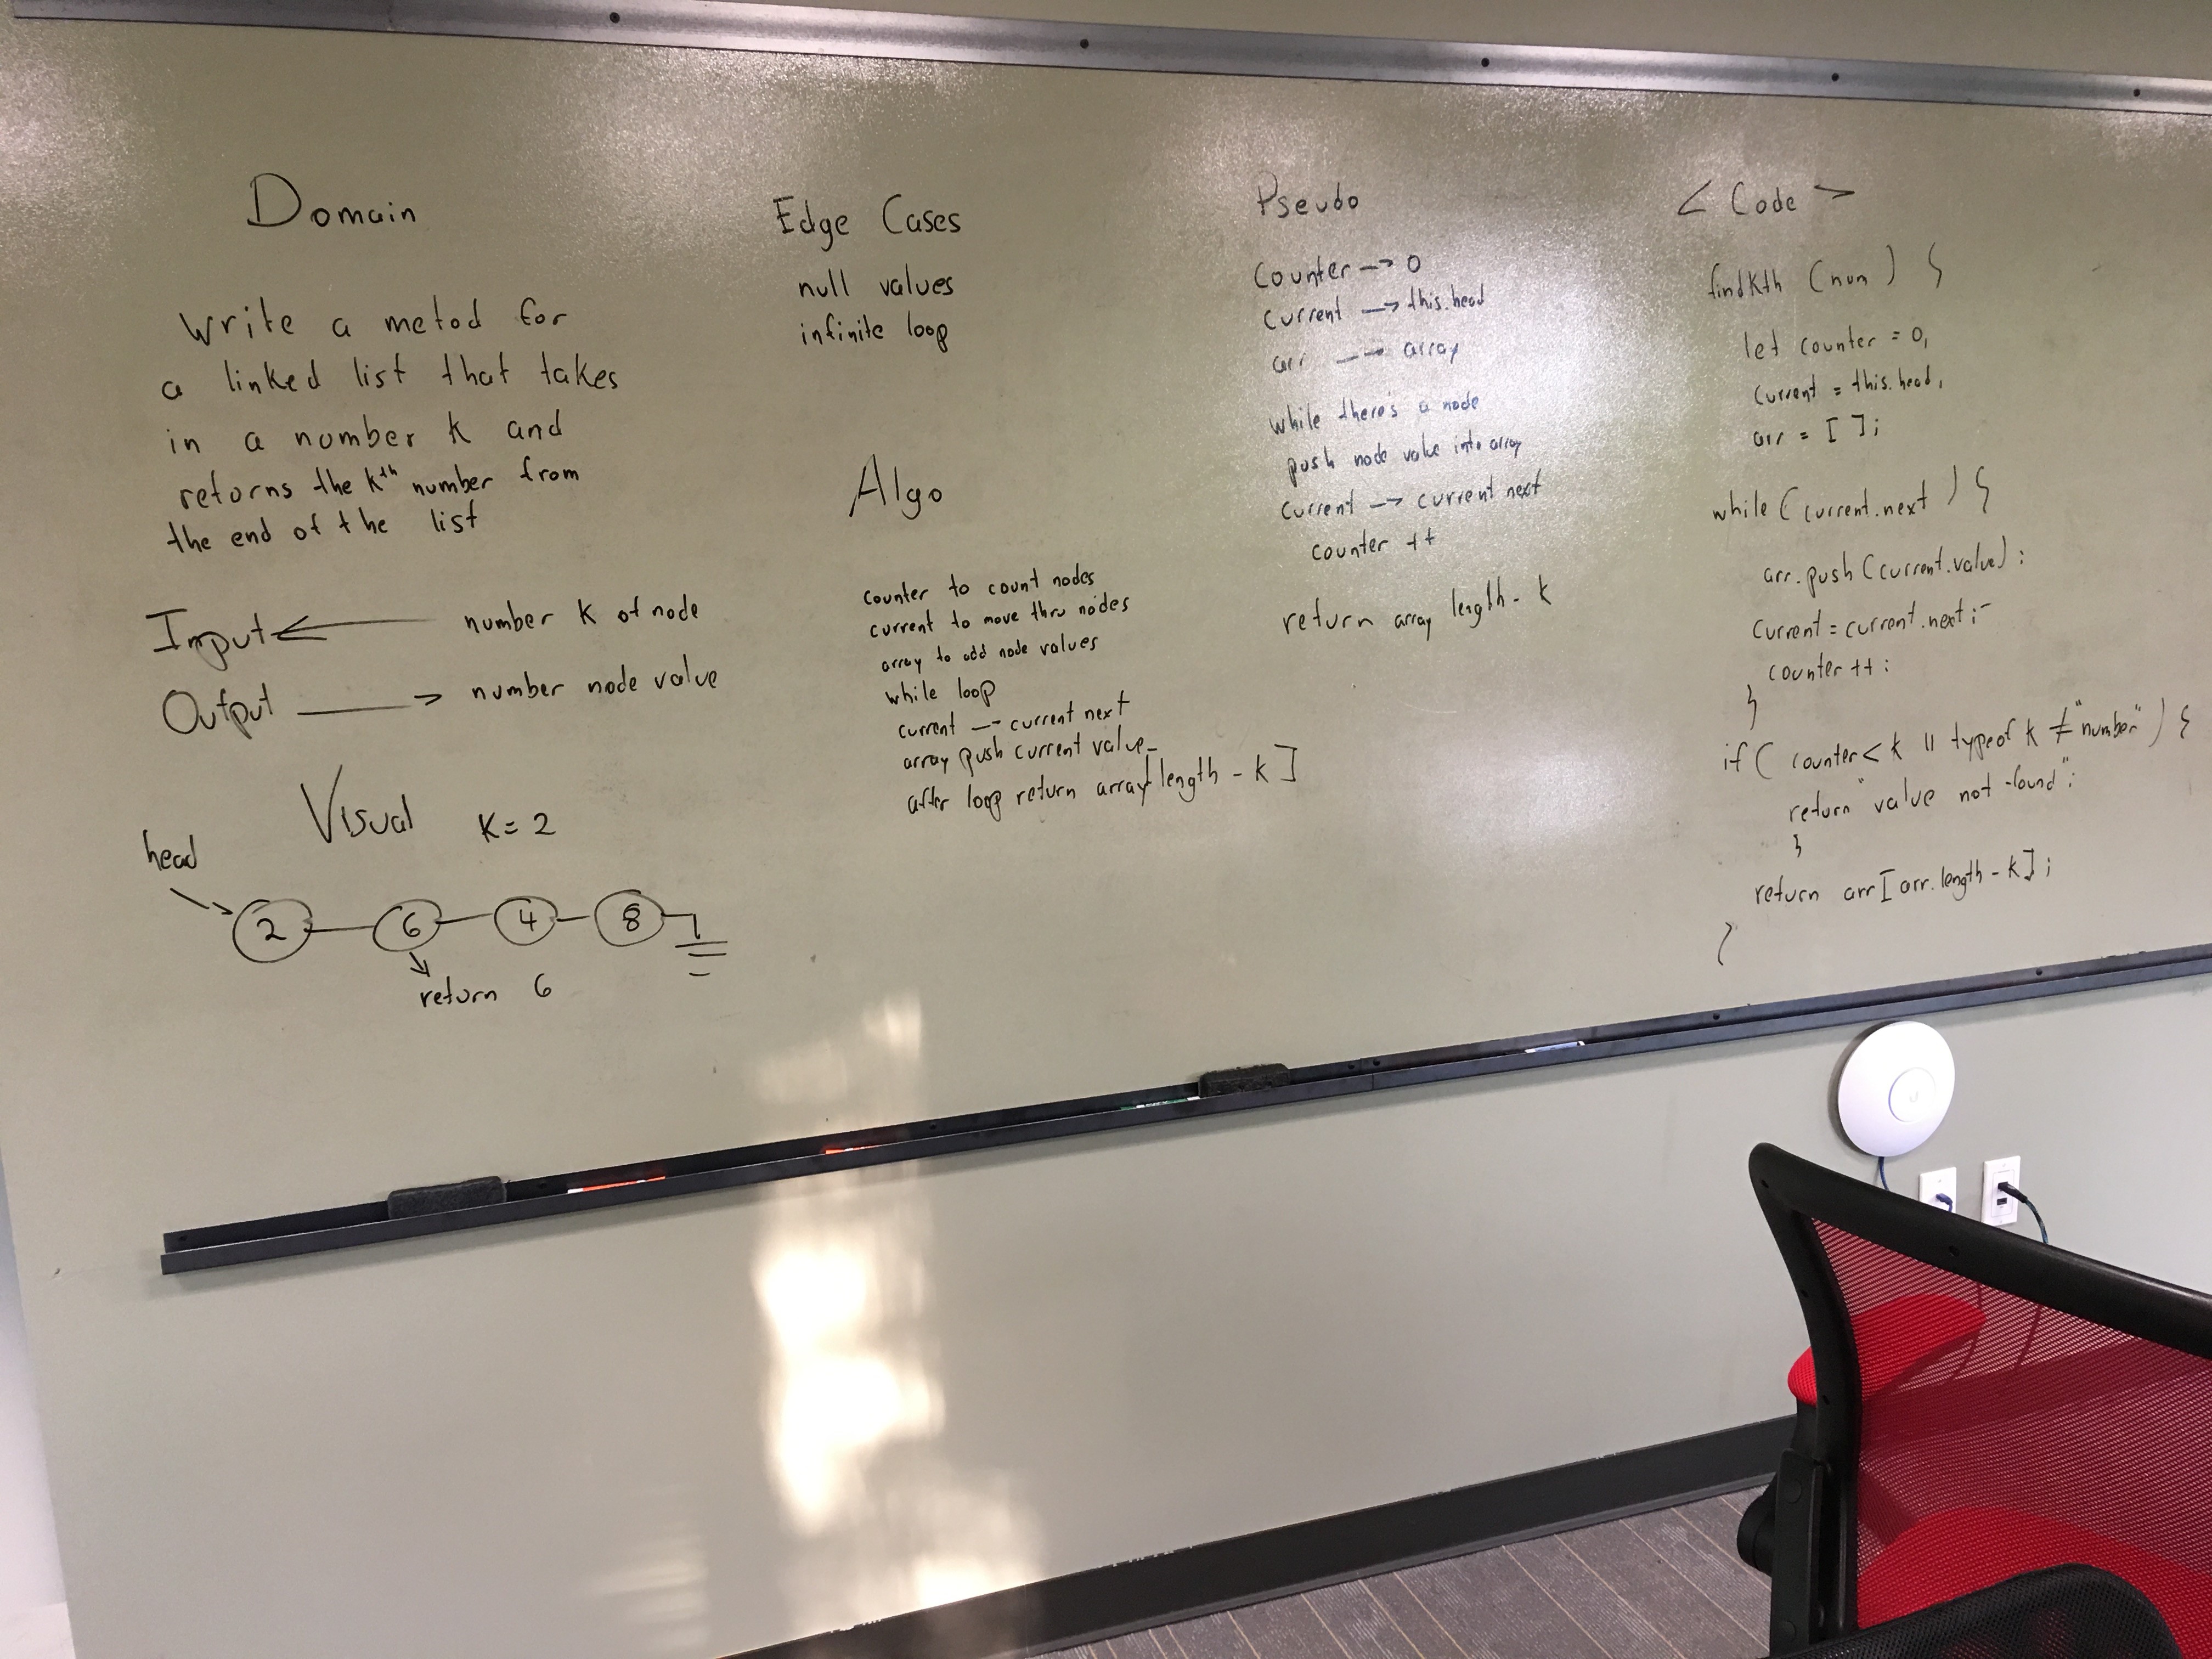 Domain
Write a metod for
a linked list that takes
in a number k and
returns the kth number from
the end of the list
Input <- number k of node
Output -> number node value
Visual k=2
head
2 6 4 8
return 6
Edge Cases
null values
infinite loop
Algo
counter to count nodes
current to move thru nodes
array to add node values
while loop
current -> current next
array push current value
after loop return array[length - k]
Pseudo
Counter -> 0
current -> this.head
arr -> array
while there's a node
push node value into array
current -> current next
counter ++
return array length - k
< Code >
findKth (num) {
let counter = 0,
current = this.head,
arr = [ ];
while (current.next) {
arr.push(current.value);
current = current.next;
counter ++;
}
if ( counter < k || typeof k ≠ "number" ) {
return "value not found";
}
return arr[arr.length - k];
}